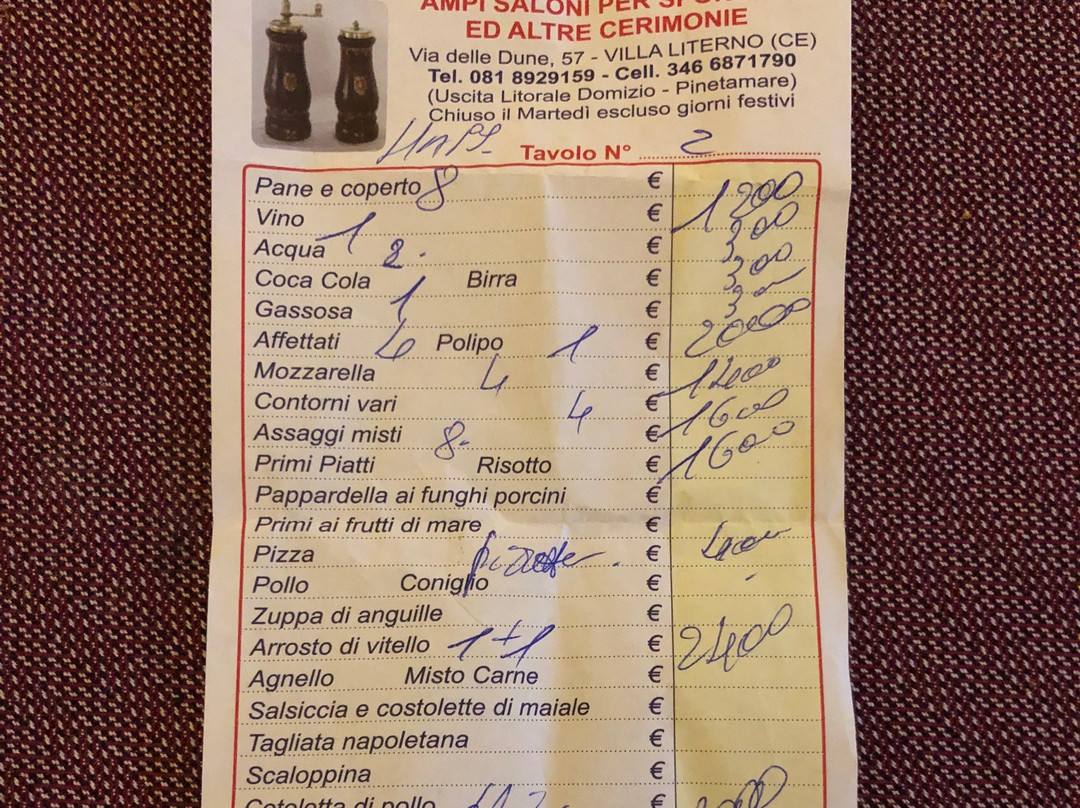 AMPI SALONI PER
ED ALTRE CERIMONIE
Via delle Dune, 57 - VILLA LITERNO (CE)
Tel. 081 8929159 - Cell. 346 6871790
(Uscita Litorale Domizio - Pinetamare)
Chiuso il Martedì escluso giorni festivi
Tavolo N° 2
Pane e coperto 8 € 1200
Vino 1 € 300
Acqua 2. € 300
Coca Cola Birra €
Gassosa 1 € 300
Affettati 4 Polipo 1 € 2000
Mozzarella 4 € 1400
Contorni vari 4 € 1600
Assaggi misti 8- € 1600
Primi Piatti Risotto €
Pappardella ai funghi porcini €
Primi ai frutti di mare €
Pizza € 400
Pollo Coniglio €
Zuppa di anguille €
Arrosto di vitello 1+1 € 2400
Agnello Misto Carne €
Salsiccia e costolette di maiale €
Tagliata napoletana €
Scaloppina €
Cotoletta di pollo €